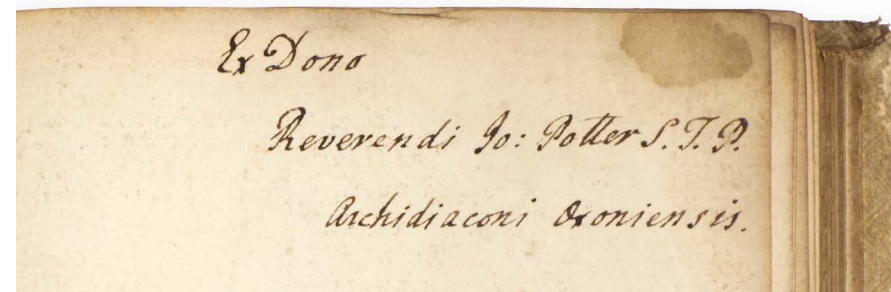 Ex Dono
Reverendi Jo: Potter S.T.P.
Archidiaconi Oxoniensis.